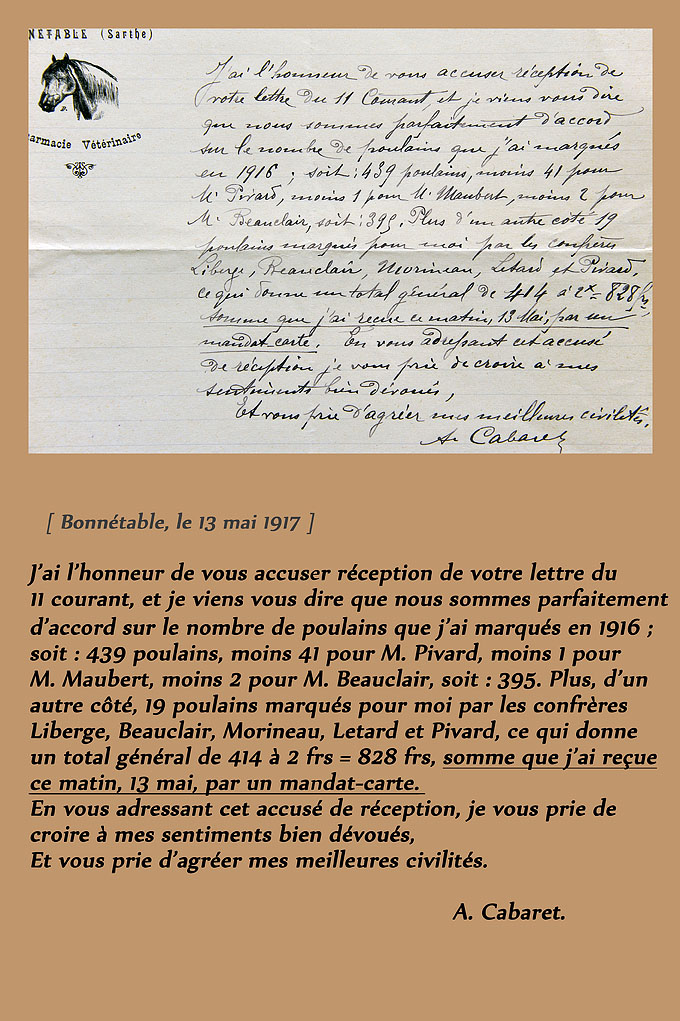 NÉTABLE (Sarthe)
armacie Vétérinaire
J'ai l'honneur de vous accuser réception de
votre lettre du 11 Courant, et je viens vous dire
que nous sommes parfaitement d'accord
sur le nombre de poulains que j'ai marqués
en 1916 ; soit : 439 poulains, moins 41 pour
M. Pivard, moins 1 pour M. Maubert, moins 2 pour
M. Beauclair, soit : 395. Plus d'un autre côté 19
poulains marqués pour moi par les confrères
Liberge, Beauclair, Morineau, Letard et Pivard,
ce qui donne un total général de 414 à 2x = 828 frs,
somme que j'ai reçue ce matin, 13 Mai, par un
mandat-carte. En vous adressant cet accusé
de réception je vous prie de croire à mes
sentiments bien dévoués,
Et vous prie d'agréer mes meilleures civilités.
A. Cabaret
[ Bonnétable, le 13 mai 1917 ]
J'ai l'honneur de vous accuser réception de votre lettre du
11 courant, et je viens vous dire que nous sommes parfaitement
d'accord sur le nombre de poulains que j'ai marqués en 1916 ;
soit : 439 poulains, moins 41 pour M. Pivard, moins 1 pour
M. Maubert, moins 2 pour M. Beauclair, soit : 395. Plus, d'un
autre côté, 19 poulains marqués pour moi par les confrères
Liberge, Beauclair, Morineau, Letard et Pivard, ce qui donne
un total général de 414 à 2 frs = 828 frs, somme que j'ai reçue
ce matin, 13 mai, par un mandat-carte.
En vous adressant cet accusé de réception, je vous prie de
croire à mes sentiments bien dévoués,
Et vous prie d'agréer mes meilleures civilités.
A. Cabaret.